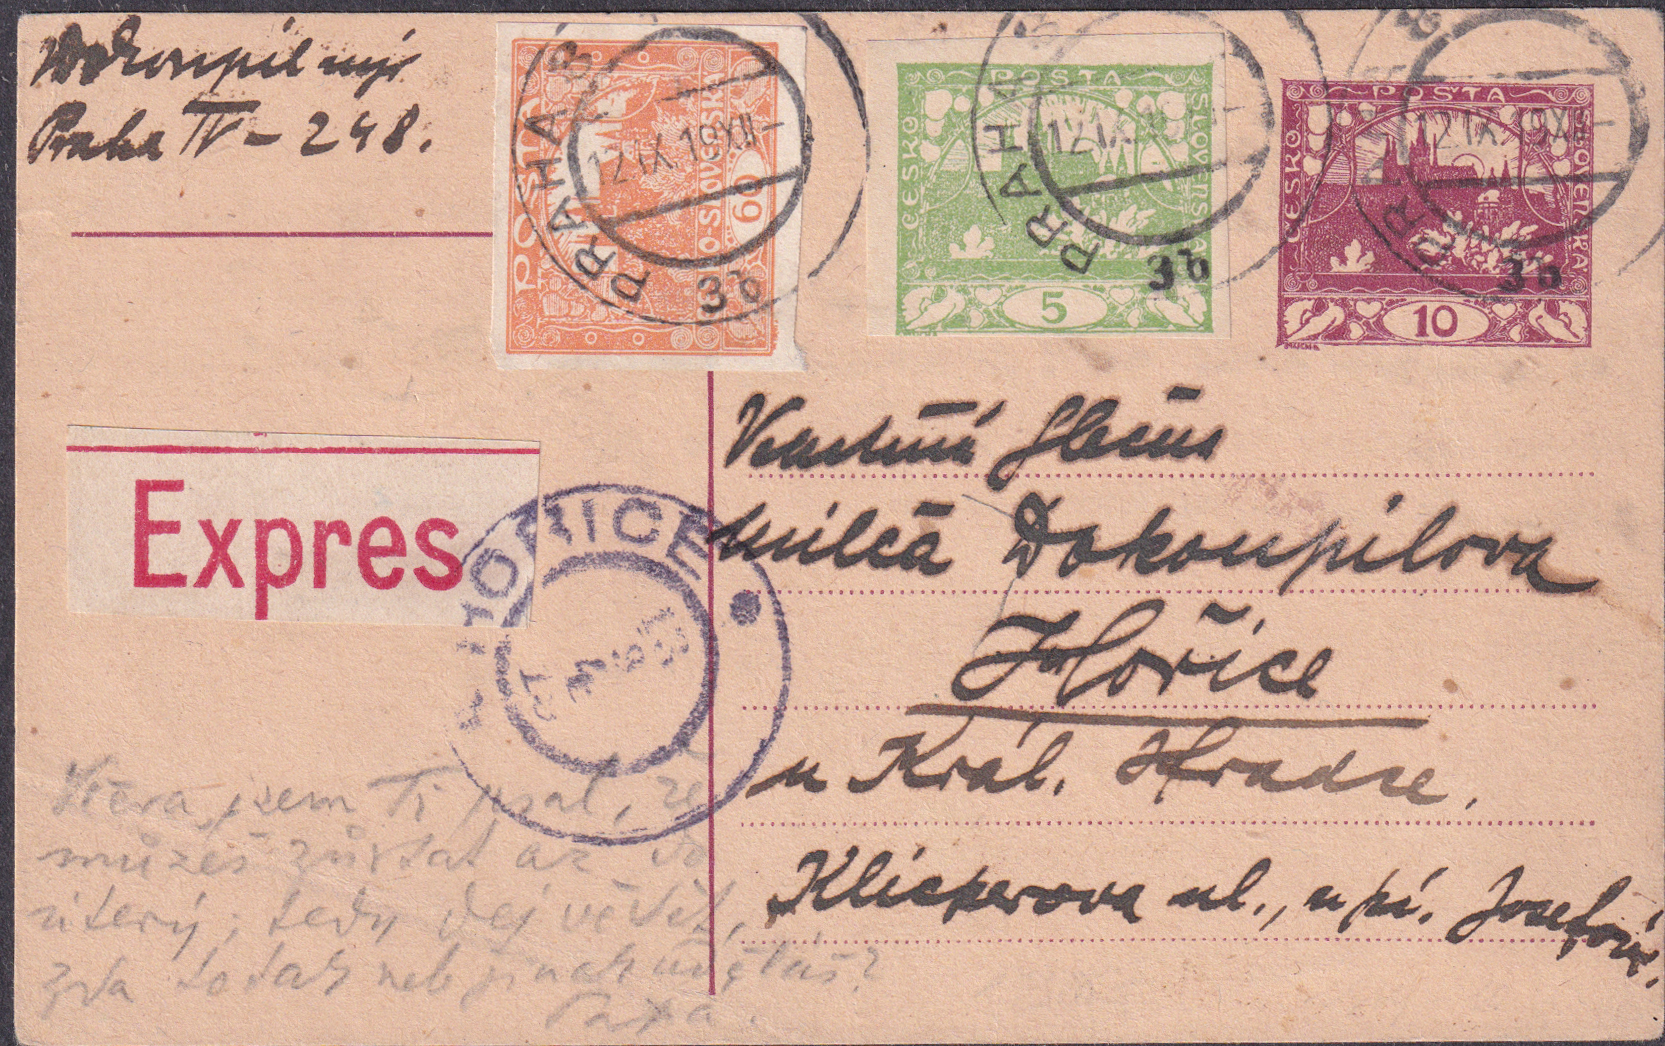 Dokoupil mjr.
Praha IV – 248.
POŠTA
ČESKO-SLOVENSKÁ
60
PRAHA
12.IX.19XII-
3b
POŠTA
ČESKO SLOVENSKÁ
5
PRAHA
12.IX.
3b
POŠTA
ČESKO SLOVENSKÁ
10
MUCHA
12.IX.19XII-
3b
Expres
HOŘICE
Vzácná
Dokoupilova
Hořice
u Král. Hradce.
Klicperova ul., u pí. Josefové
Včera jsem Ti psal, že
můžeš zůstat až do
úterý; tedy dej vědět,
zda to tak neb jinak
Papa.